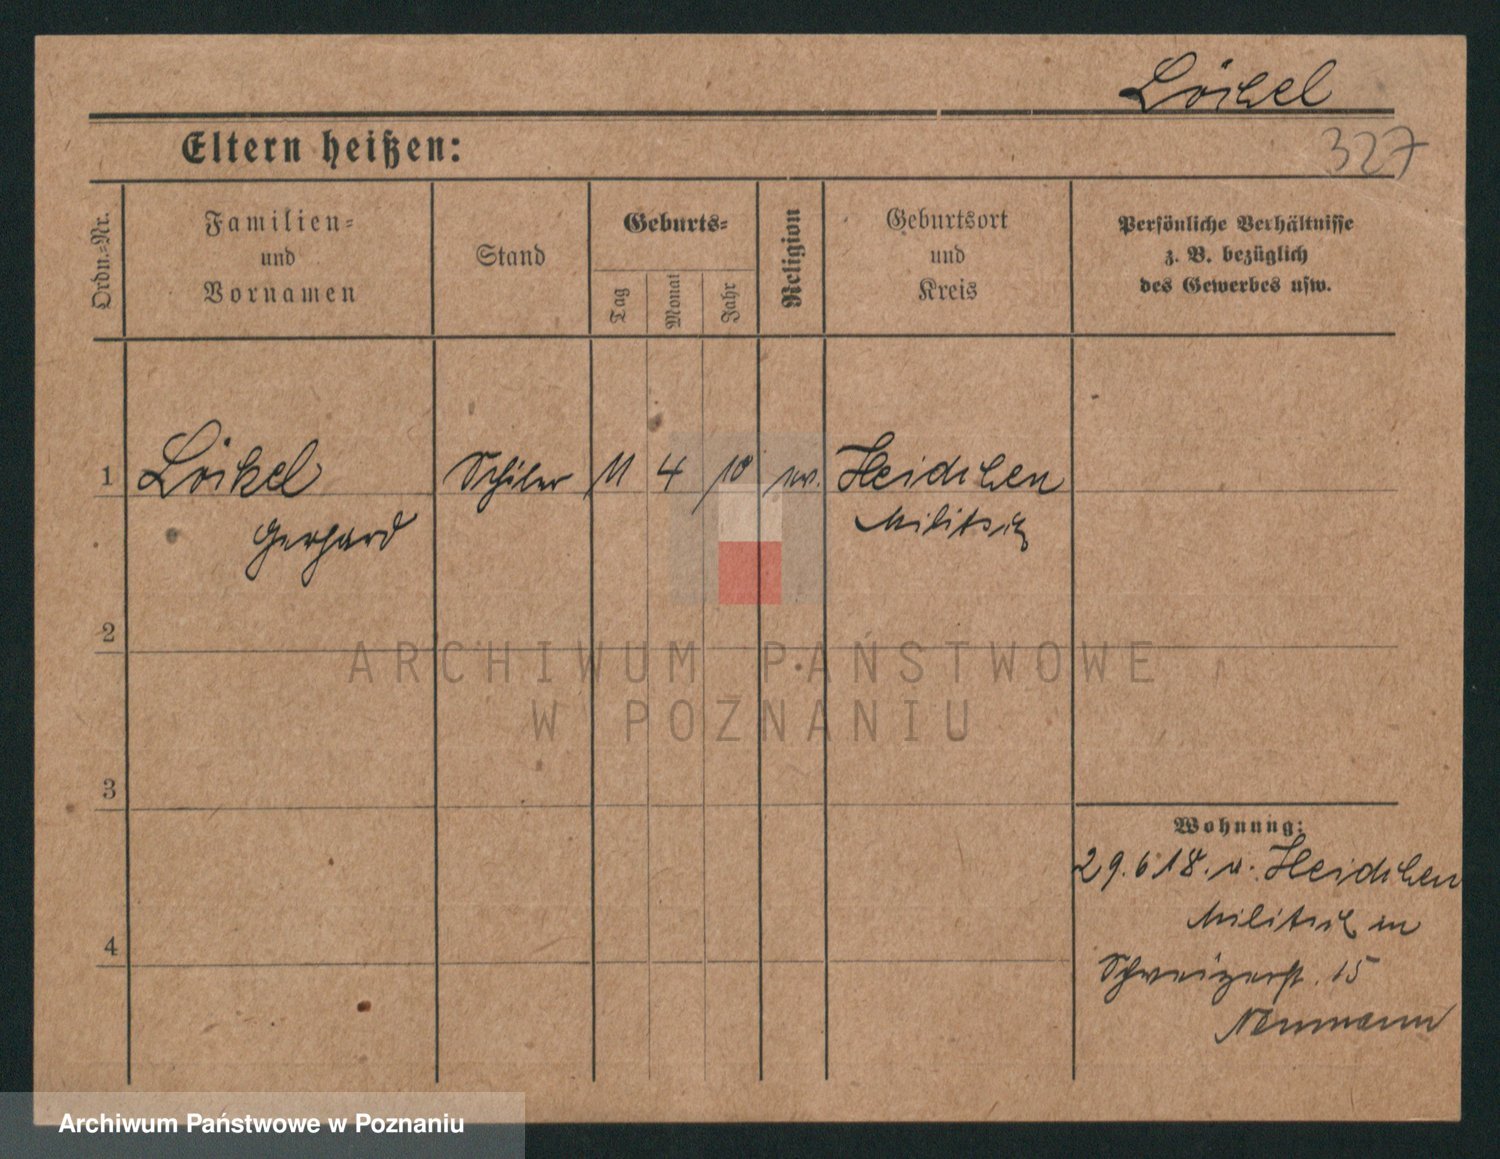 Löikel
327
Eltern heißen:
Ordn.=Nr.
Familien=
und
Vornamen
Stand
Geburts=
Tag
Monat
Jahr
Religion
Geburtsort
und
Kreis
Persönliche Verhältnisse
z. B. bezüglich
des Gewerbes usw.
1 Löikel Schüler 11 4 10 ev. Heidchen
Gerhard Militsch
2
ARCHIWUM PAŃSTWOWE
W POZNANIU
3
Wohnung:
29.6 18. v. Heidchen
4 Militsch in
Schweizerst. 15
Neumann
Archiwum Państwowe w Poznaniu